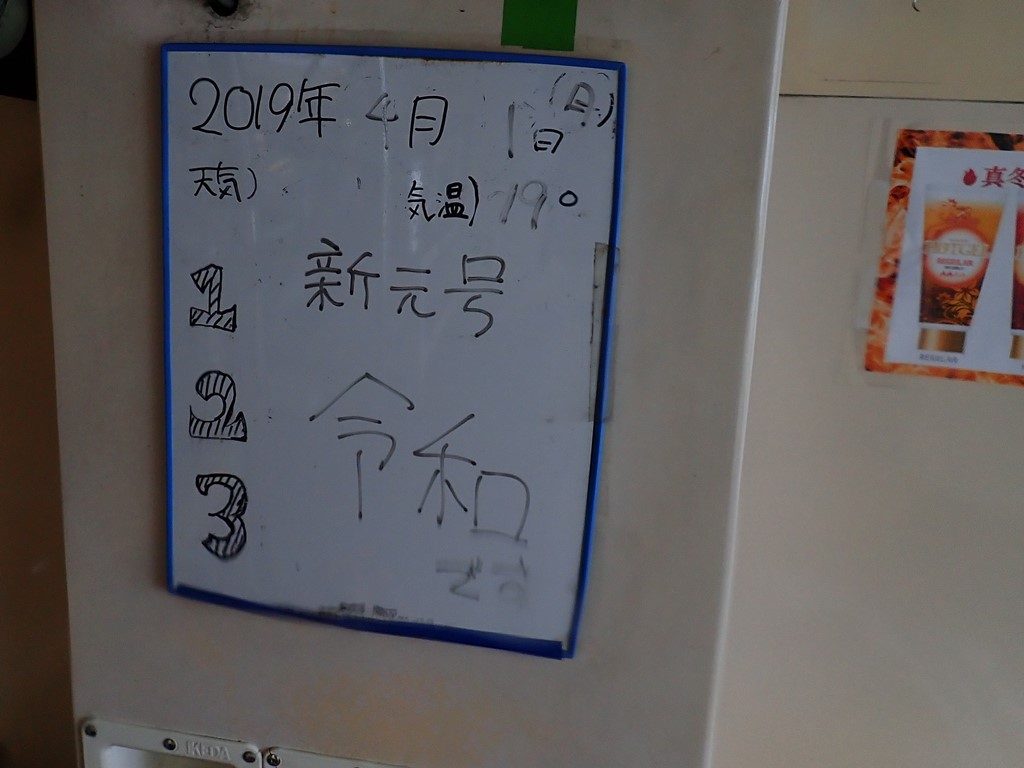 2019年 4月 1日(月)
天気) 気温) 19°
1 新元号
2 令和
3
真冬
REGULAR
REGULAR
IKEDA